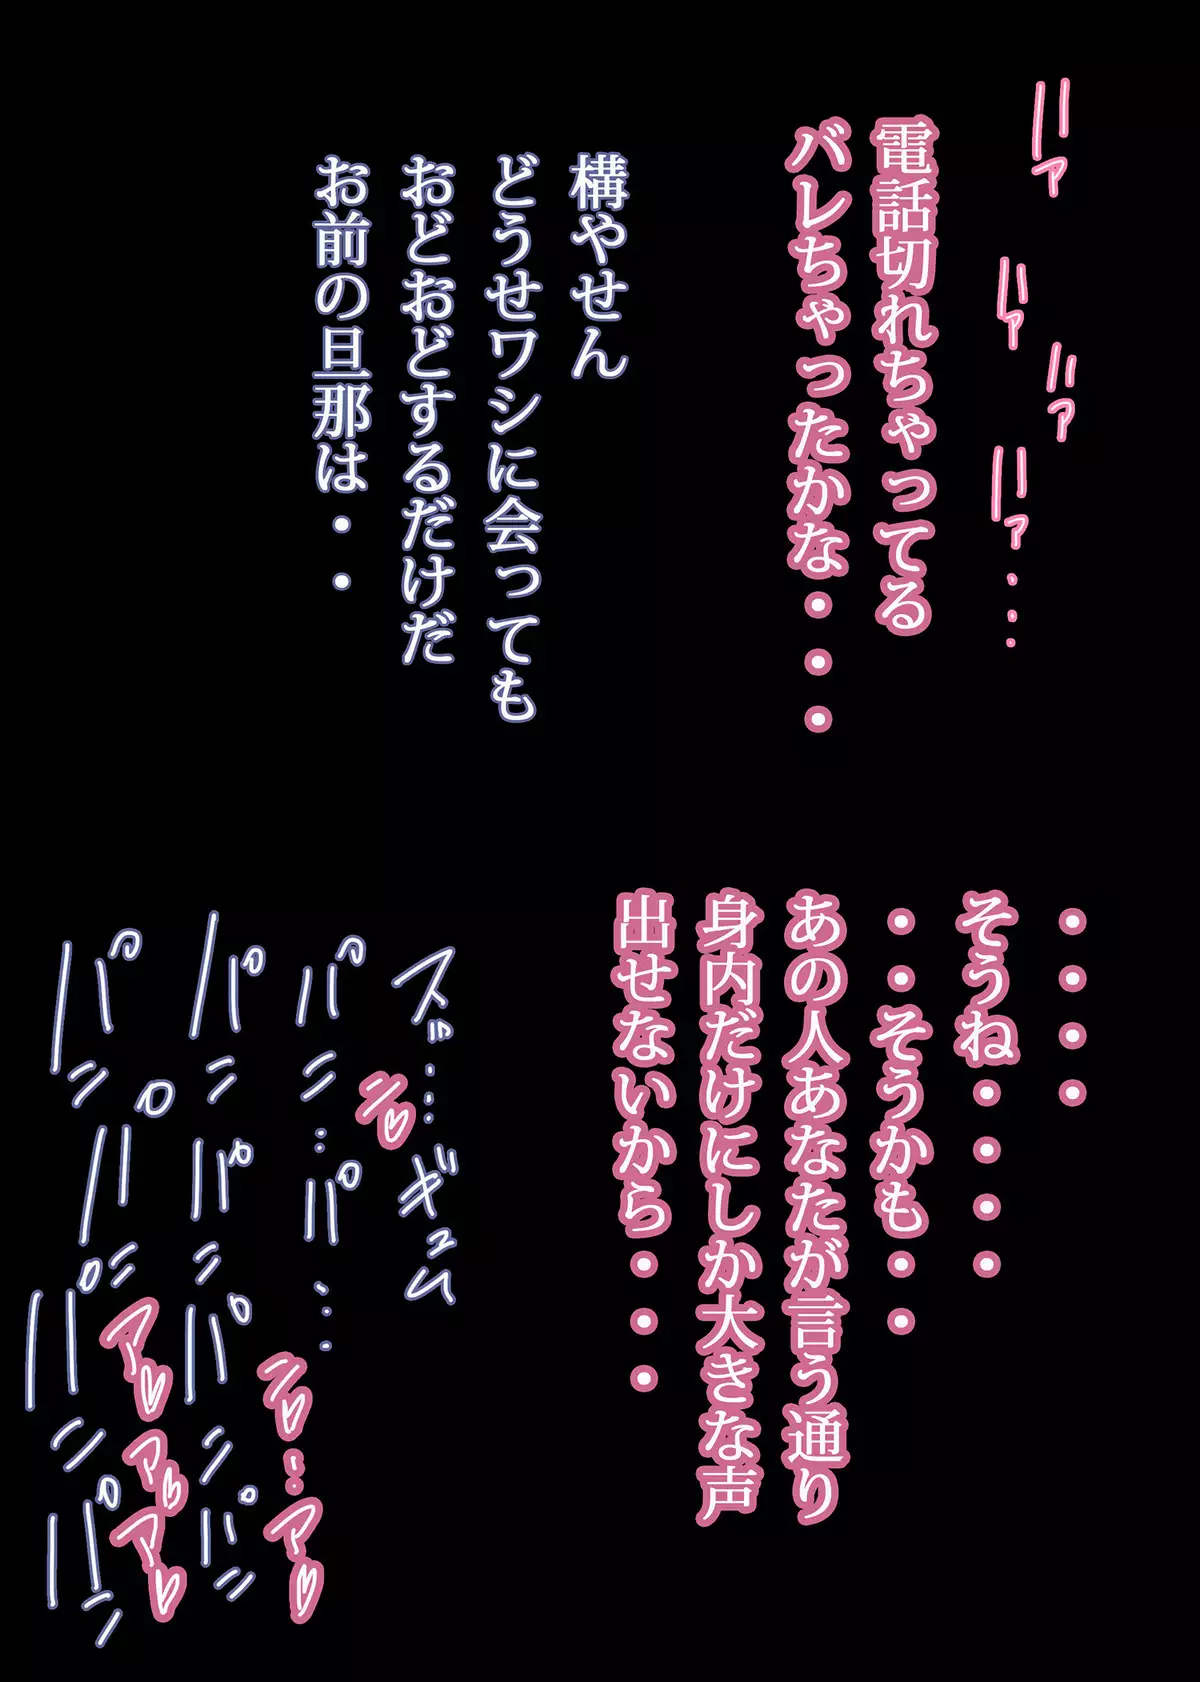 ハァ
ハァ
ハァ
ハァ・・・
電話切れちゃってる
バレちゃったかな・・・
構やせん
どうせワシに会っても
おどおどするだけだ
お前の旦那は・・
・・・・
そうね・・・・
・・そうかも・・
あの人あなたが言う通り
身内だけにしか大きな声
出せないから・・・
ズッ・・・ギュム
ン♡
パン・・・パ・・・
ン♡・・・ア♡
パンパンパンパン
パンパンパンパン
ア♡ア♡ア♡